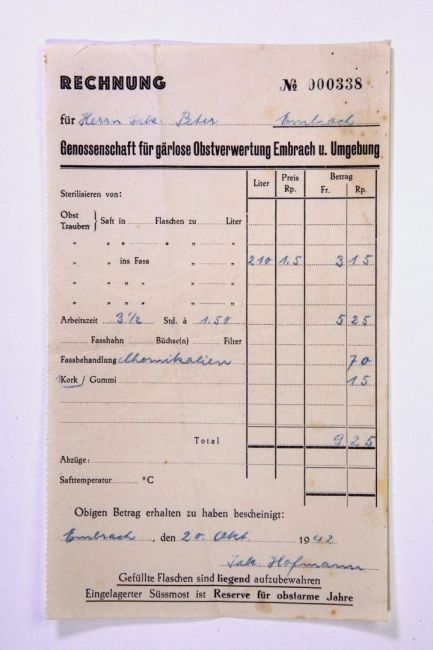 RECHNUNG № 000338
für Herrn Jak. Peter Embrach
Genossenschaft für gärlose Obstverwertung Embrach u. Umgebung
Sterilisieren von: Liter Preis Rp. Betrag Fr. Rp.
Obst Trauben } Saft in Flaschen zu Liter
" " " " " "
" " ins Fass " " 210 1.5 3 15
" " " " " "
" " " " " "
Arbeitszeit 3½ Std. à 1.50 5 25
Fasshahn Büchse(n) Filter
Fassbehandlung Chemikalien 70
Kork / Gummi 15
Total 9 25
Abzüge:
Safttemperatur °C
Obigen Betrag erhalten zu haben bescheinigt:
Embrach, den 20. Okt. 1942
Jak. Hofmann
Gefüllte Flaschen sind liegend aufzubewahren
Eingelagerter Süssmost ist Reserve für obstarme Jahre